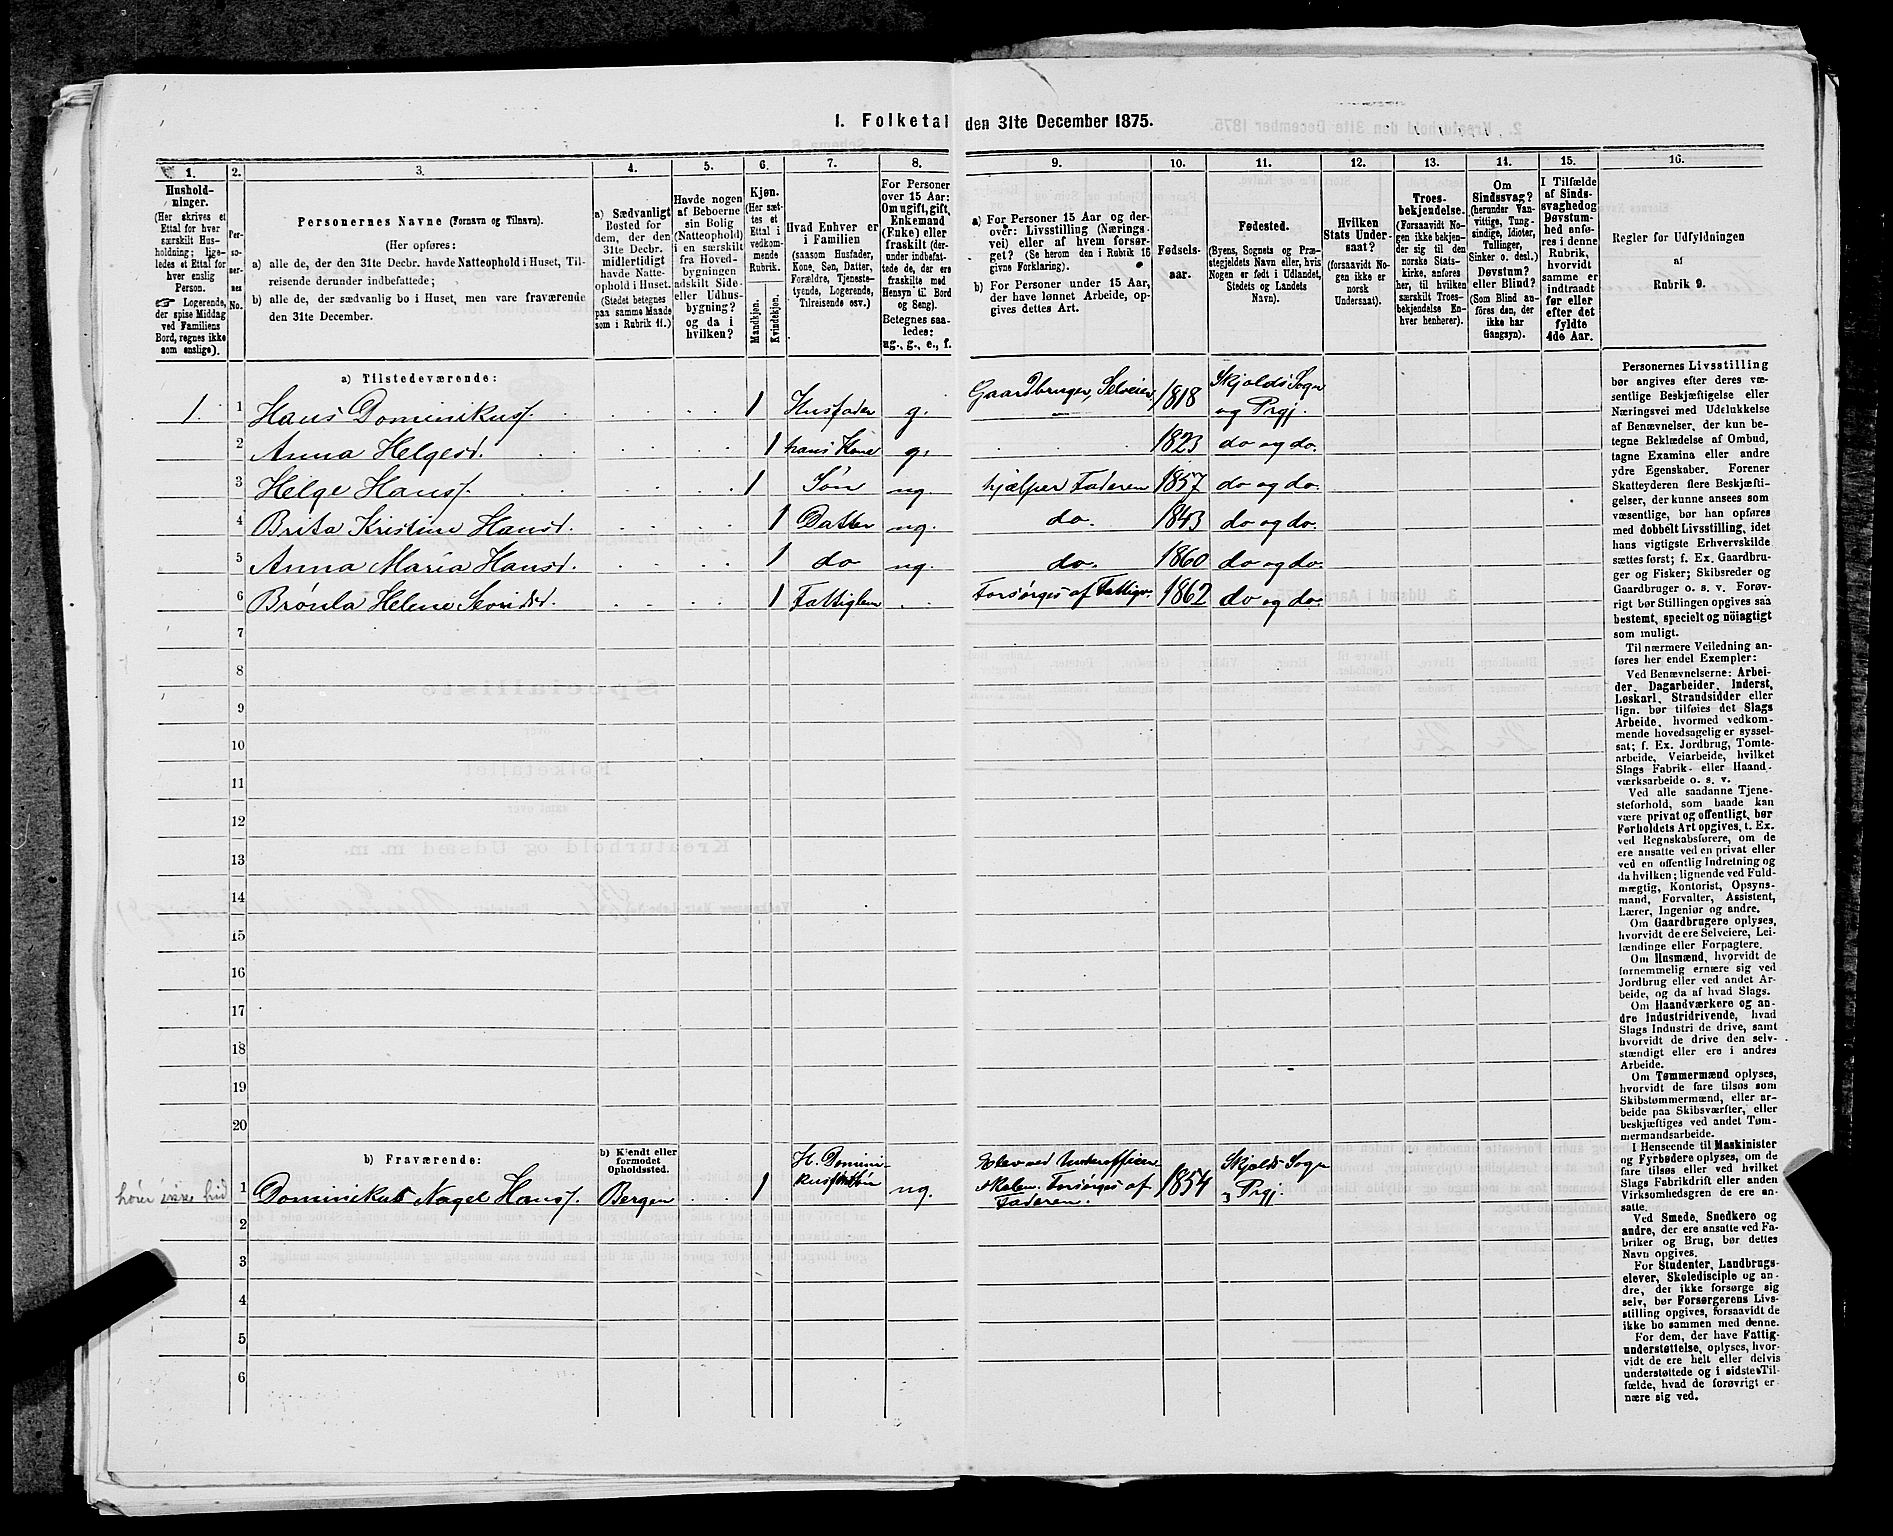 I. Folketal den 31te December 1875.
1. 2. 3. 4. 5. 6. 7. 8. 9. 10. 11. 12. 13. 14. 15. 16.
Hushold-
ninger.
(Her skrives et
Ettal for hver
særskilt Hus-
holdning; lige-
ledes et Ettal for
hver enslig
Person.
☞ Logerende,
der spise Middag
ved Familiens
Bord, regnes ikke
som enslige).
Per-
so-
ner-
nes
No.
Personernes Navne (Fornavn og Tilnavn).
(Her opføres:
a) alle de, der den 31te Decbr. havde Natteophold i Huset, Til-
reisende derunder indbefattede;
b) alle de, der sædvanlig bo i Huset, men vare fraværende
den 31te December.
a) Sædvanligt
Bosted for
dem, der den
31te Decbr.
midlertidigt
havde Natte-
ophold i Huset.
(Stedet betegnes
paa samme Maade
som i Rubrik 11.)
Havde nogen
af Beboerne
sin Bolig
(Natteophold)
i en særskilt
fra Hoved-
bygningen
adskilt Side-
eller Udhus-
bygning?
og da i
hvilken?
Kjøn.
(Her sæt-
tes et
Ettal i
vedkom-
mende
Rubrik.
Mandkjøn.
Kvindekjøn.
Hvad Enhver er
i Familien
(saasom Husfader,
Kone, Søn, Datter,
Forældre, Tjeneste-
tyende, Logerende,
Tilreisende osv.)
For Personer
over 15 Aar:
Om ugift, gift,
Enkemand
(Enke) eller
fraskilt (der-
under indbefat-
tede de, der ere
fraskilte med
Hensyn til Bord
og Seng).
Betegnes saa-
ledes:
ug., g., e., f.
a) For Personer 15 Aar og der-
over: Livsstilling (Nærings-
vei) eller af hvem forsør-
get? (Se herom den i Rubrik 16
givne Forklaring).
b) For Personer under 15 Aar,
der have lønnet Arbeide, op-
gives dettes Art.
Fødsels-
aar.
Fødested.
(Byens, Sognets og Præ-
stegjeldets Navn eller, hvis
Nogen er født i Udlandet,
Stedets og Landets
Navn).
Hvilken
Stats Under-
saat?
(forsaavidt No-
gen ikke er
norsk
Undersaat).
Troes-
bekjendelse.
(Forsaavidt No-
gen ikke bekjen-
der sig til den
norske Stats-
kirke, anføres
her, til hvilken
særskilt Troes-
bekjendelse En-
hver henhører).
Om
Sindssvag?
(herunder Van-
vittige, Tung-
sindige, Idioter,
Tullinger,
Sinker o. desl.)
Døvstum?
eller Blind?
(Som Blind an-
føres den, der
ikke har
Gangsyn).
I Tilfælde
af Sinds-
svaghed og
Døvstum-
hed anfø-
res i denne
Rubrik,
hvorvidt
samme er
indtraadt
før eller
efter det
fyldte
4de Aar.
Regler for Udfyldningen
af
Rubrik 9.
a) Tilstedeværende:
1. 1 Hans Dominikuss. 1 Husfader g. Gaardbruger, Selveier 1818 Skjolds Sogn og Prgj.
2 Anna Helgesd. 1 hans Kone g. 1823 do og do.
3 Helge Hanss. 1 Søn ug. hjælper Faderen 1857 do og do.
4 Brita Kristine Hansd. 1 Datter ug. do. 1843 do og do.
5 Anna Maria Hansd. 1 do ug. do. 1860 do og do.
6 Helene 1 Fattiglem Forsørges af Fattigv. 1862 do og do.
7
8
9
10
11
12
13
14
15
16
17
18
19
20
b) Fraværende:
b) Kjendt eller
formodet
Opholdssted.
1 Dominikus Nagel Hanss. Bergen 1 H. Domini-
kuss Søn ug. Elev ved Underofficer
skolen. Forsørges af
Faderen. 1854 Skjolds Sogn
Prgj.
2
3
4
5
6
Personernes Livsstilling
bør angives efter deres væ-
sentlige Beskjæftigelse eller
Næringsvei med Udelukkelse
af Benævnelser, der kun be-
tegne Beklædelse af Ombud,
tagne Examina eller andre
ydre Egenskaber. Forener
Skatteyderen flere Beskjæfti-
gelser, der kunne ansees som
væsentlige, bør han opføres
med dobbelt Livsstilling, idet
hans vigtigste Erhvervskilde
sættes først; f. Ex. Gaardbru-
ger og Fisker; Skibsreder og
Gaardbruger o. s. v. Forøv-
rigt bør Stillingen opgives saa
bestemt, specielt og nöiagtigt
som muligt.
Til nærmere Veiledning an-
føres her endel Exempler:
Ved Benævnelserne: Arbei-
der, Dagarbeider, Inderst,
Løskarl, Strandsidder eller
lign. bør tilføies det Slags
Arbeide, hvormed vedkom-
mende hovedsagelig er syssel-
sat; f. Ex. Jordbrug, Tomte-
arbeide, Veiarbeide, hvilket
Slags Fabrik- eller Haand-
værksarbeide o. s. v.
Ved alle saadanne Tjene-
steforhold, som baade kan
være privat og offentligt, bør
Forholdets Art opgives, t. Ex.
ved Regnskabsførere, om de
ere ansatte ved en privat eller
ved en offentlig Indretning og
da hvilken; lignende ved Fuld-
mægtig, Kontorist, Opsyns-
mand, Forvalter, Assistent,
Lærer, Ingeniør og andre.
Om Gaardbrugere oplyses,
hvorvidt de ere Selveiere, Lei-
lændinge eller Forpagtere.
Om Husmænd, hvorvidt de
fornemmelig ernære sig ved
Jordbrug eller ved andet Ar-
beide, og da af hvad Slags.
Om Haandværkere og an-
dre Industridrivende, hvad
Slags Industri de drive, samt
hvorvidt de drive den selv-
stændigt eller ere i andres
Arbeide.
Om Tømmermænd oplyses,
hvorvidt de fare tilsøs som
Skibstømmermænd, eller ar-
beide paa Skibsværfter, eller
beskjæftiges ved andet Tøm-
mermandsarbeide.
I Henseende til Maskinister
og Fyrbødere oplyses, om de
fare tilsøs eller ved hvilket
Slags Fabrikdrift eller anden
Virksomhedsgren de ere an-
satte.
Ved Smede, Snedkere og
andre, der ere ansatte ved Fa-
briker og Brug, bør dettes
Navn opgives.
For Studenter, Landbrugs-
elever, Skoledisciple og an-
dre, der ikke forsørge sig
selv, bør Forsørgerens Livs-
stilling opgives, forsaavidt de
ikke bo sammen med denne.
For dem, der have Fattig-
understøttelse, oplyses, hvor-
vidt de ere helt eller delvis
understøttede og i sidste Til-
fælde, hvad de forøvrigt er-
nære sig ved.